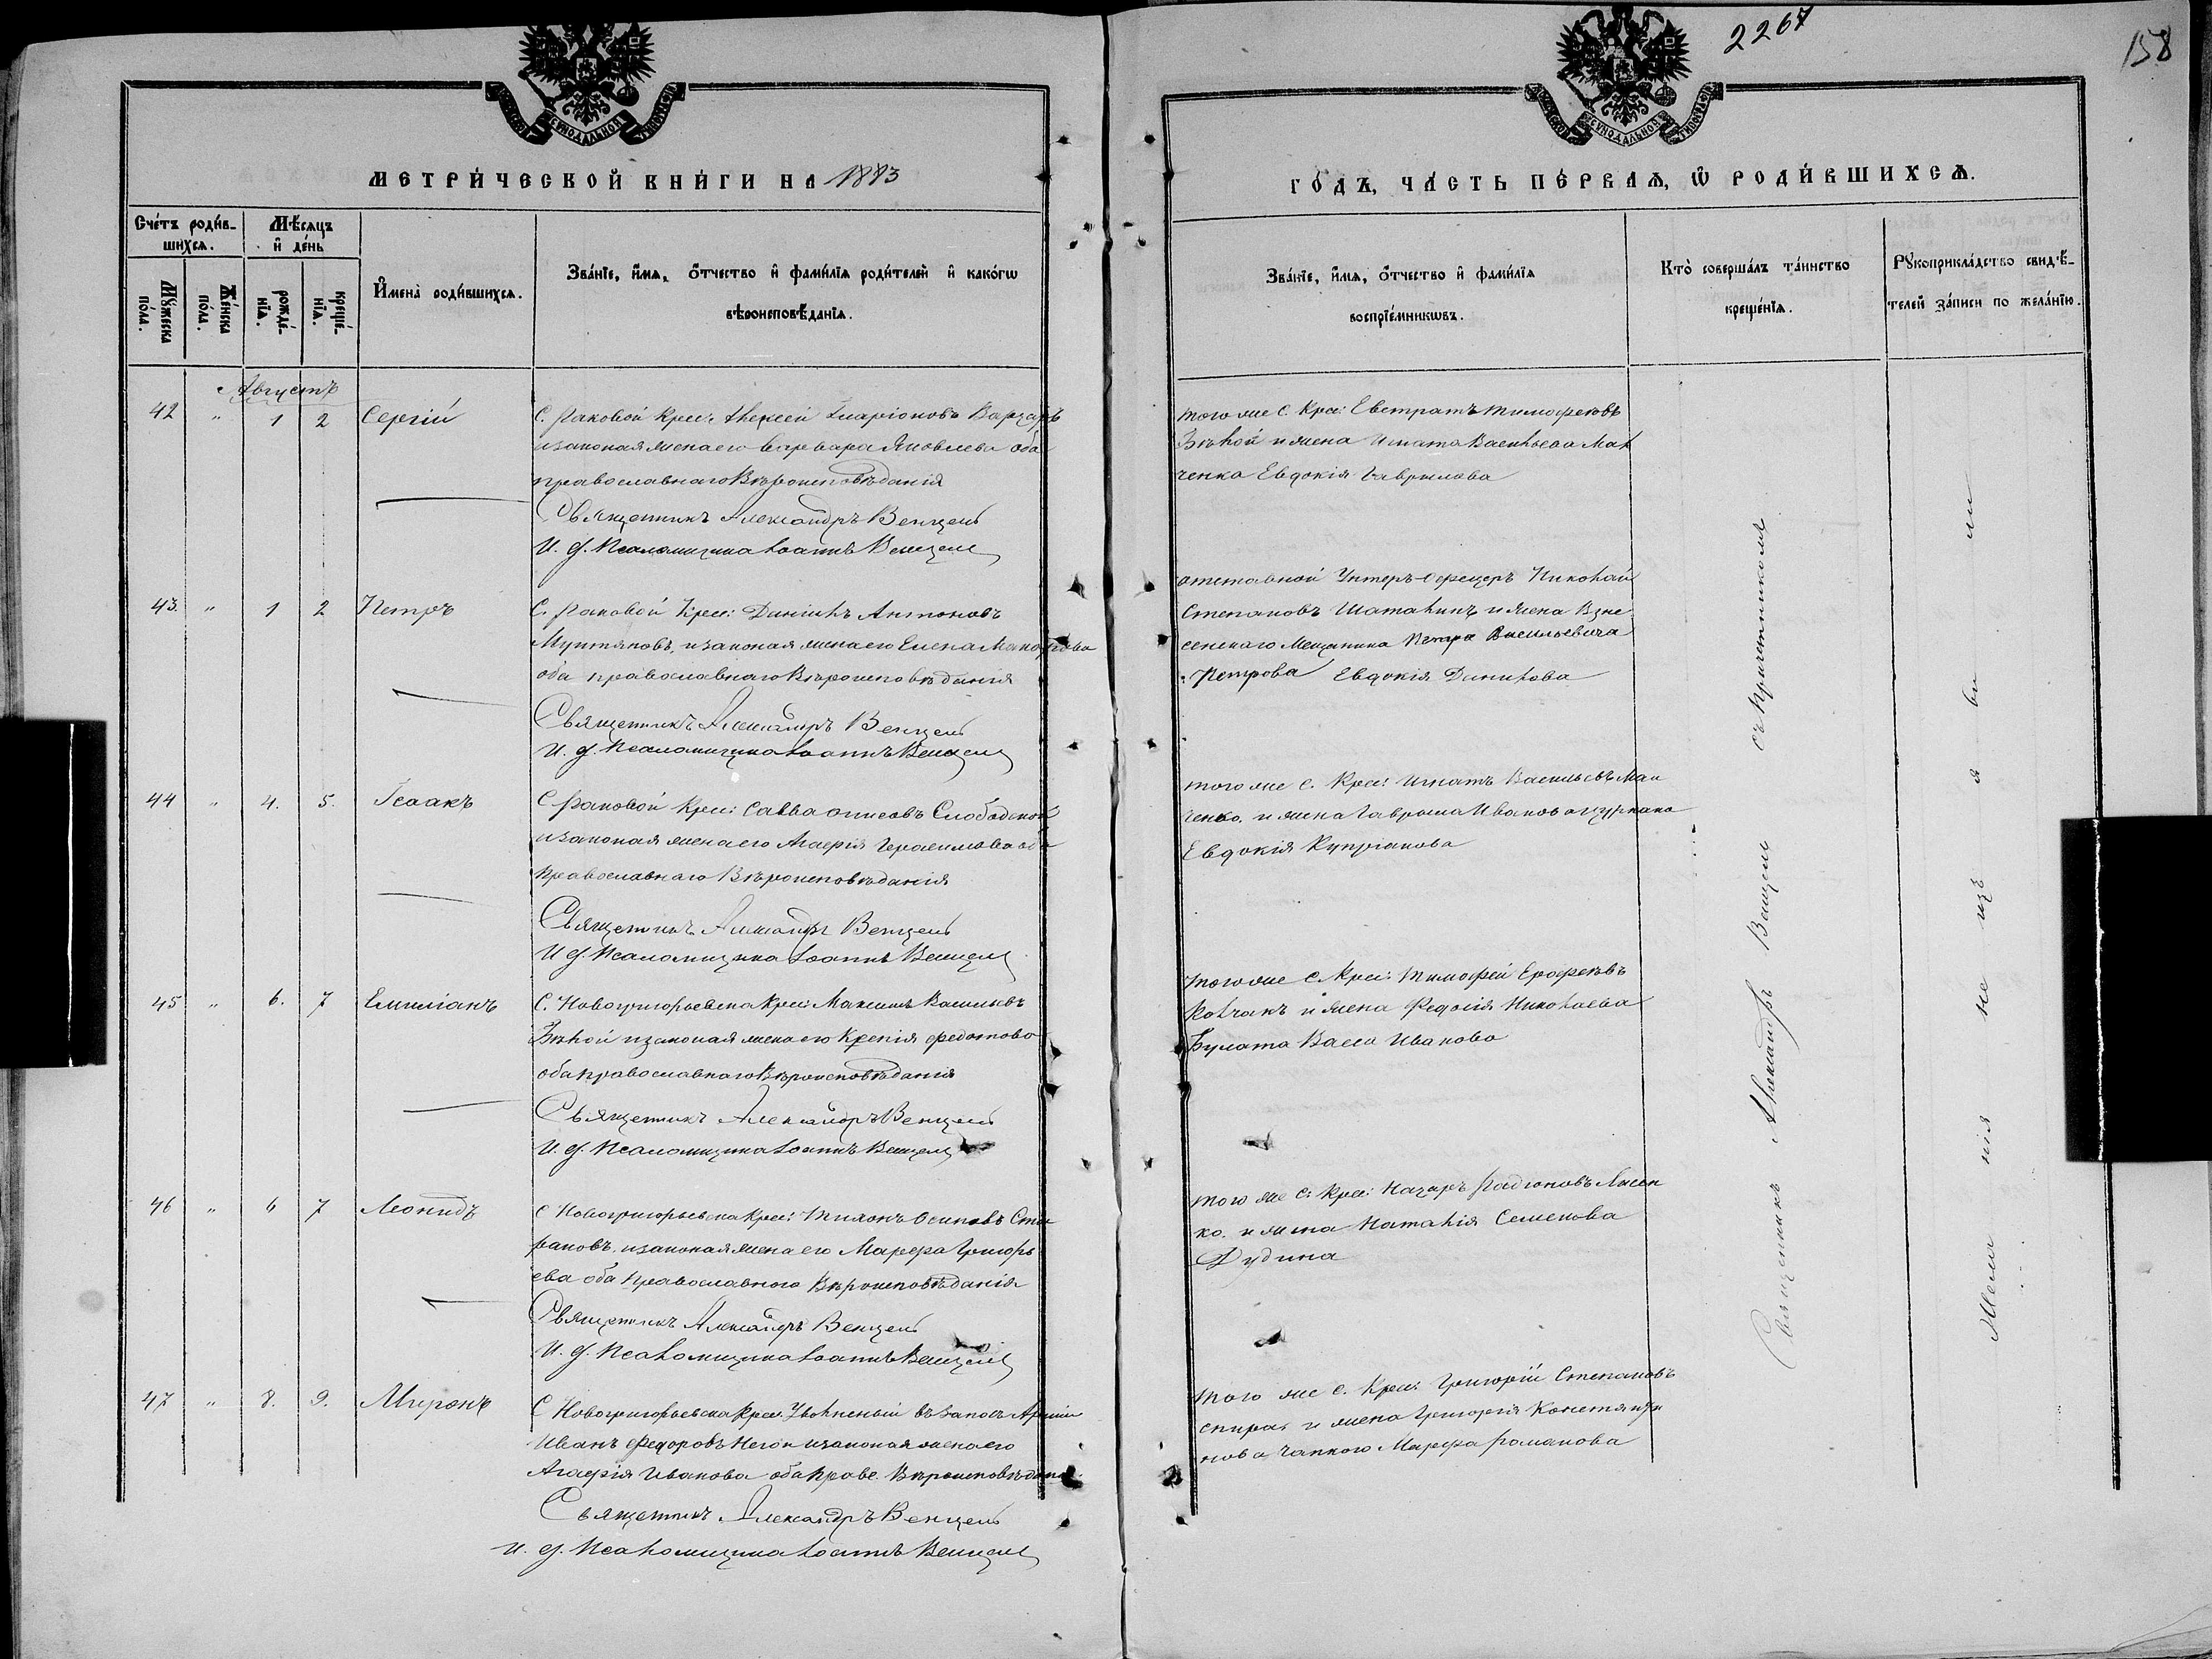 2267
158
МЕТРИ́ЧЕСКОЙ КНИ́ГИ НА 1883
ГО́ДЪ, ЧА́СТЬ ПЕ́РВАѦ, Ѡ҆ РОДИ́ВШИХСѦ.
Сче́тъ роди́в-
шихсѧ.
Мѣ́сѧцъ
и҆ де́нь
Мꙋ́жеска
по́ла.
Же́нска
по́ла.
рожде́-
нїѧ.
креще́-
нїѧ.
И҆мена̀ роди́вшихсѧ.
Зва́нїе, и҆́мѧ, о҆́тчество и҆ фами́лїѧ роди́телей и҆ како́гѡ
вѣроисповѣ́данїѧ.
Зва́нїе, и҆́мѧ, о҆́тчество и҆ фами́лїѧ
воспрїе́мникѡвъ.
Кто̀ соверша́лъ та́инство
креще́нїѧ.
Рꙋкоприкла́дство свидѣ́-
телей за́писи по жела́нїю.
Августъ
42 " 1 2 Сергій
С. Раковой Крес: Алексѣй Иларіоновъ Варцаръ
и законая жена его Варвара Яковлева оба
православнаго Вѣроисповѣданія
Священникъ Александръ Венцель
И. д. Псаломщика Іоаннъ Венцель
того же с. Крес: Евстратъ Тимофеевъ
Бѣлой и жена Игната Васильева Мат
ченка Евдокія Гаврилова
43. " 1 2 Петръ
С. Раковой Крес: Даніилъ Антоновъ
Мунтяновъ, и законая жена его Елена
оба православнаго Вѣроисповѣданія
Священникъ Александръ Венцель
И. д. Псаломщика Іоаннъ Венцель
отставной Унтеръ-Офецеръ Николай
Степановъ Шаталинъ и жена Взне
сенскаго Мещанина Петра Васильевича
Петрова Евдокія Данилова
44 " 4. 5. Ісаакъ
С Раковой Крес: Савва Слободской
и законая жена его Агафія Герасимова оба
православнаго Вѣроисповѣданія
Священникъ Александръ Венцель
И д. Псаломщика Іоаннъ Венцель
того же с. Крес: Игнатъ Васильевъ Мат
ченко. и жена Гаврила Иванова
Евдокія Купріанова
45 " 6. 7 Емиліанъ
С. Новогригорьевска Крес: Максимъ Васильевъ
Бѣлой и законая жена его Ксенія Федотова
оба православнаго Вѣроисповѣданія
Священникъ Александръ Венцель
И. д. Псаломщика Іоаннъ Венцель
того же с. Крес: Тимофей Ерофеевъ
Колчакъ и жена Николаева
Булата Васса Иванова
46 " 6 7 Леонидъ
С Новогригорьевска Крес: Тихонъ Осиповъ
и законая жена его Марфа Григорь
ева оба православного Вѣроисповѣданія
Священникъ Александръ Венцель
И. д. Псаломщика Іоаннъ Венцель
того же с: Крес: Назаръ Радіоновъ Лисен
ко. и жена Наталія Семенова
Дудина
47 " 8. 9. Миронъ
С Новогригорьевска Крес. Уволненый въ запасъ Арміи
Иванъ Федоровъ и законая жена его
Агафія Иванова оба Право.
Священникъ Александръ Венцель
и. д. Псаломщика Іоаннъ Венцель
того же с. Крес: Григорій Степановъ
и жена Григорія Константи
нова Марфа Романова
Священникъ Александръ Венцель съ Причетникомъ